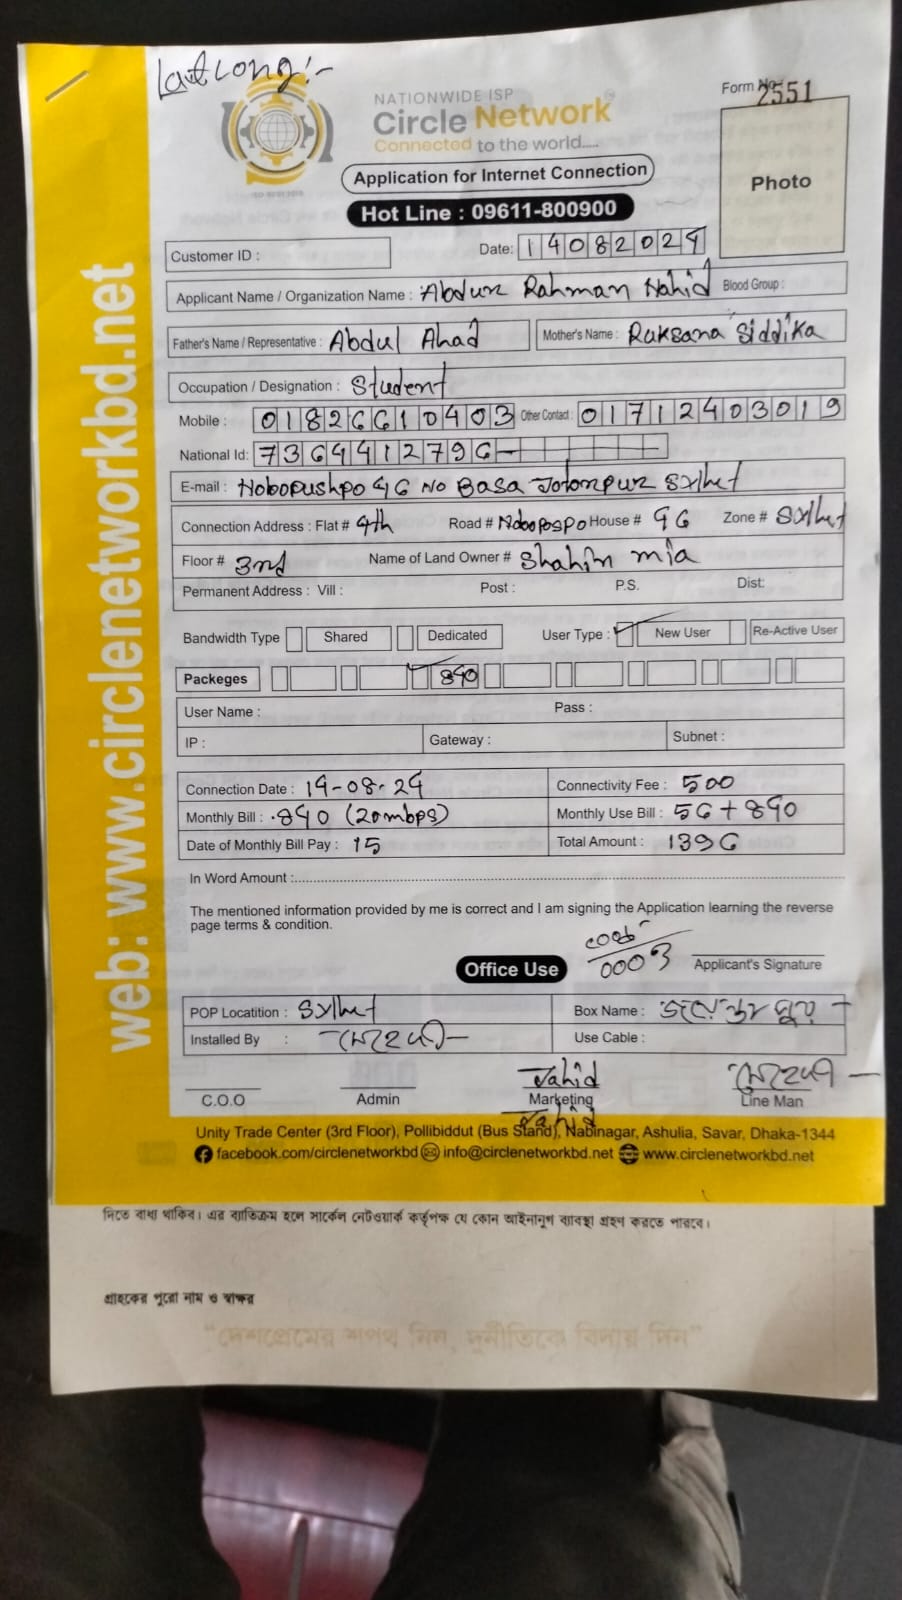 Lat Long:-
NATIONWIDE ISP
Circle Network
Connected to the world.....
Form No. 2551
Photo
Application for Internet Connection
Hot Line : 09611-800900
Customer ID :
Date: 14082024
Applicant Name / Organization Name : Abdur Rahman Nahid Blood Group :
Father's Name / Representative : Abdul Ahad Mother's Name : Ruksana Siddika
Occupation / Designation : Student
Mobile : 01826610403 Other Contact : 01712403019
National Id: 7364412796
E-mail : Nobopushpo 46 No Basa Jotorpur Sylhet
Connection Address : Flat # 4th Road # Nobopospo House # 46 Zone # Sylhet
Floor # 3rd Name of Land Owner # Shahin mia
Permanent Address : Vill : Post : P.S. Dist:
Bandwidth Type Shared Dedicated User Type : New User Re-Active User
Packeges 840
User Name : Pass :
IP : Gateway : Subnet :
Connection Date : 14-08-24 Connectivity Fee : 500
Monthly Bill : 840 (20mbps) Monthly Use Bill : 56 + 840
Date of Monthly Bill Pay : 15 Total Amount : 1396
In Word Amount :
The mentioned information provided by me is correct and I am signing the Application learning the reverse
page terms & condition.
Office Use
Applicant's Signature
POP Locatition : Sylhet Box Name :
Installed By : মেহেদী Use Cable :
Jahid মেহেদী
C.O.O Admin Marketing Line Man
Jahid
Unity Trade Center (3rd Floor), Pollibiddut (Bus Stand), Nabinagar, Ashulia, Savar, Dhaka-1344
facebook.com/circlenetworkbd info@circlenetworkbd.net www.circlenetworkbd.net
web: www.circlenetworkbd.net
দিতে বাধ্য থাকিব। এর ব্যতিক্রম হলে সার্কেল নেটওয়ার্ক কর্তৃপক্ষ যে কোন আইনানুগ ব্যাবস্থা গ্রহণ করতে পারবে।
গ্রাহকের পুরো নাম ও স্বাক্ষর
"দেশপ্রেমের শপথ নিন, দুর্নীতিকে বিদায় দিন"